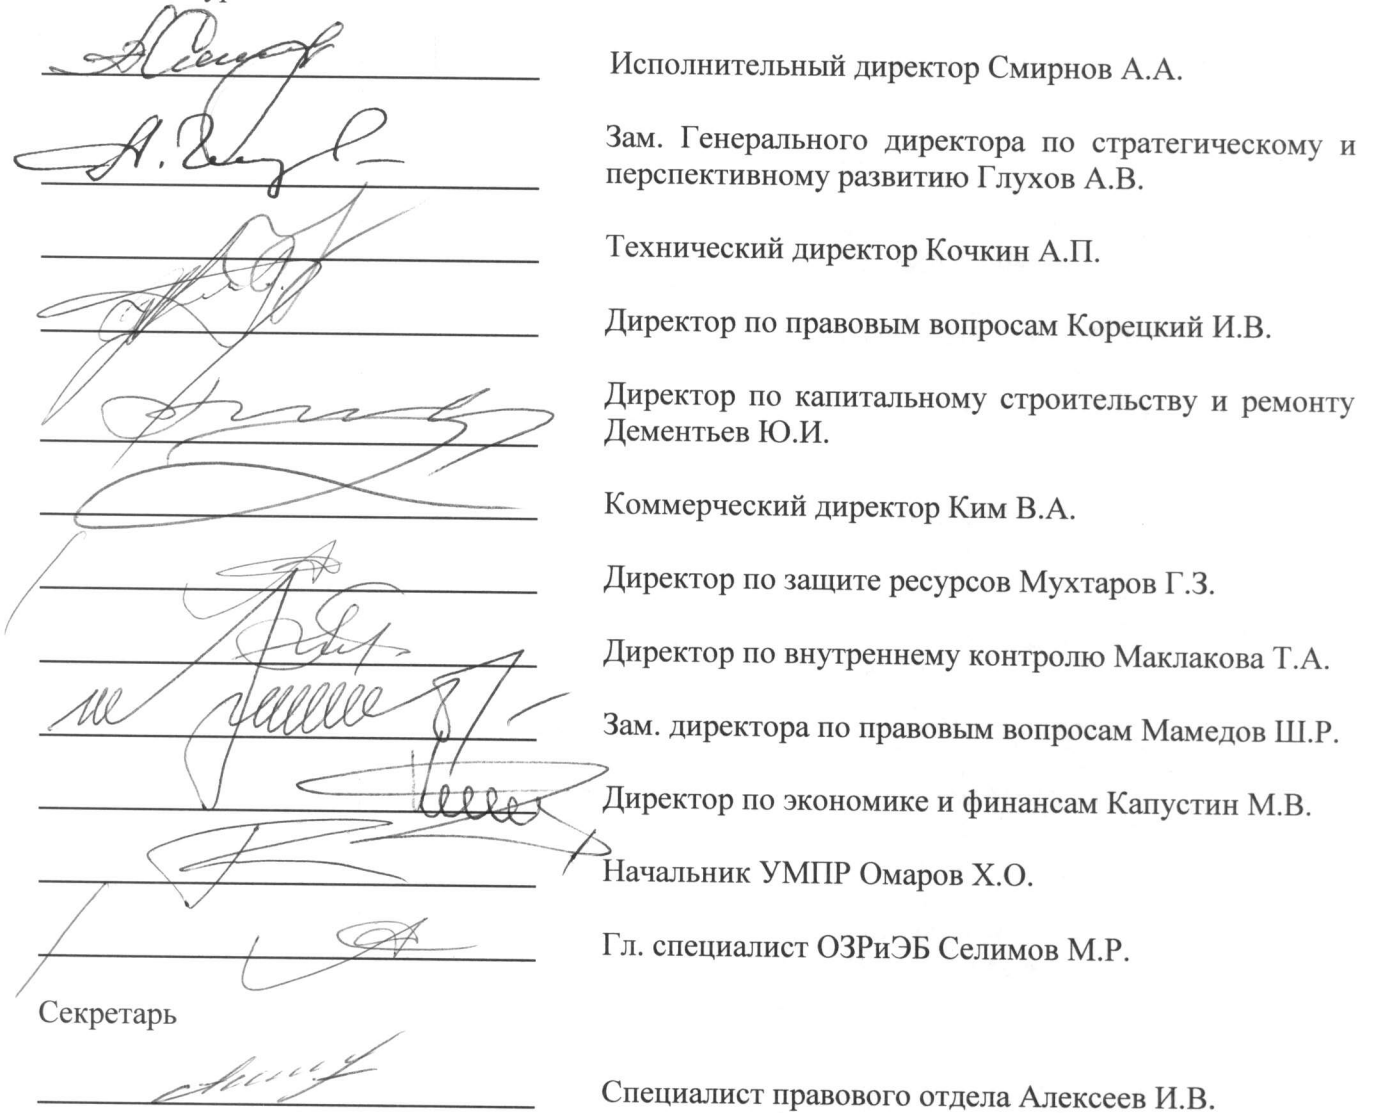 Исполнительный директор Смирнов А.А.
Зам. Генерального директора по стратегическому и
перспективному развитию Глухов А.В.
Технический директор Кочкин А.П.
Директор по правовым вопросам Корецкий И.В.
Директор по капитальному строительству и ремонту
Дементьев Ю.И.
Коммерческий директор Ким В.А.
Директор по защите ресурсов Мухтаров Г.З.
Директор по внутреннему контролю Маклакова Т.А.
Зам. директора по правовым вопросам Мамедов Ш.Р.
Директор по экономике и финансам Капустин М.В.
Начальник УМПР Омаров Х.О.
Гл. специалист ОЗРиЭБ Селимов М.Р.
Секретарь
Специалист правового отдела Алексеев И.В.